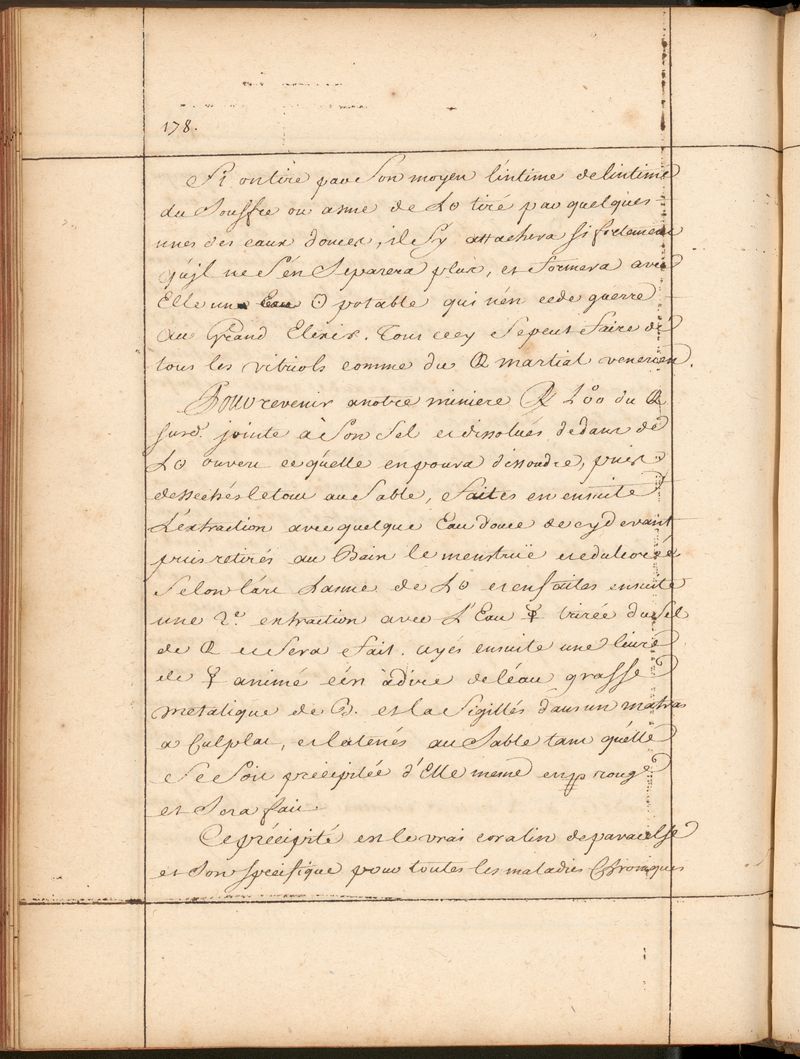 178.
Si on tire par Son moyen l'intime de l'intime
du Souffre ou asme de L☉ tiré par quelques
unes des eaux douces, il S'y attachera si fortement
qu'jl ne S'en Separera plus, et formera avec
Elle une ☉ potable qui n'en cede guerre
au Grand Elixir. Tout cecy Se peut faire de
tous les vitriols comme du martial venerien.
Pour revenir a notre miniere du
jointe à Son Sel et dissolués dedans de
L☉ ouvert ce qu'elle en poura dissoudre, puis
dessechés le tout au Sable, faites en ensuite
L'extraction avec quelque Eau douce de cy devant
puis retirés au Bain le menstruë et edulcoré
Selon l'art L'asme de L☉ et en faites ensuite
une 2.e extraction avec L'Eau ☿ tirée du Sel
de et Sera fait. ayés ensuite une livre
de ☿ animé c'en à dire de l'eau grasse
metalique de et la Sigillés dans un matras
a Cul plat, et la tenés au Sable tant qu'elle
Se Soit précipitée d'Elle meme en rouge
et Sera fait.
Ce précipité en le vrai coralin de paracelse
et Son Specifique pour toutes les maladies Chroniques